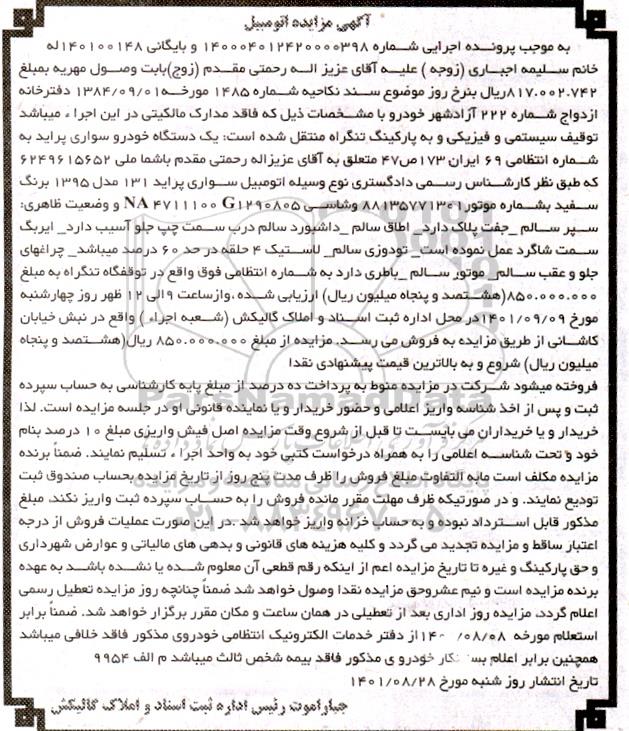 آگهی مزایده اتومبیل
به موجب پرونده اجرایی شماره ۱۴۰۰۰۴۰۱۲۴۲۰۰۰۰۳۹۸ و بایگانی ۱۴۰۱۰۰۱۴۸له
خانم سلیمه اجباری (زوجه ) علیه آقای عزیز اله رحمتی مقدم (زوج)بابت وصول مهریه بمبلغ
۸۱۷.۰۰۲.۷۴۲ریال بنرخ روز موضوع سند نکاحیه شماره ۱۴۸۵ مورخه۱۳۸۴/۰۹/۰۱ دفترخانه
ازدواج شماره ۲۲۲ آزادشهر خودرو با مشخصات ذیل که فاقد مدارک مالکیتی در این اجراء میباشد
توقیف سیستمی و فیزیکی و به پارکینگ تنگراه منتقل شده است: یک دستگاه خودرو سواری پراید به
شماره انتظامی ۶۹ ایران ۱۷۳ص۴۷ متعلق به آقای عزیزاله رحمتی مقدم باشما ملی ۶۲۴۹۶۱۵۶۵۲
که طبق نظر کارشناس رسمی دادگستری نوع وسیله اتومبیل سواری پراید ۱۳۱ مدل ۱۳۹۵ برنگ
سفید بشماره موتور۸۸۱۳۵۷۷۱۳۰۱ وشاسی NA ۴۷۱۱۱۰۰ G۱۲۹۰۸۰۵ و وضعیت ظاهری:
سپر سالم _جفت پلاک دارد_ اطاق سالم _داشبورد سالم درب سمت چپ جلو آسیب دارد_ ایربگ
سمت شاگرد عمل نموده است_ تودوزی سالم_ لاستیک ۴ حلقه در حد ۶۰ درصد میباشد_ چراغهای
جلو و عقب سالم_ موتور سالم _باطری دارد به شماره انتظامی فوق واقع در توقفگاه تنگراه به مبلغ
۸۵۰.۰۰۰.۰۰۰(هشتصد و پنجاه میلیون ریال) ارزیابی شده ،وازساعت ۹الی ۱۲ ظهر روز چهارشنبه
مورخ ۱۴۰۱/۰۹/۰۹در محل اداره ثبت اسناد و املاک گالیکش (شعبه اجراء ) واقع در نبش خیابان
کاشانی از طریق مزایده به فروش می رسد. مزایده از مبلغ ۸۵۰.۰۰۰.۰۰۰ ریال(هشتصد و پنجاه
میلیون ریال) شروع و به بالاترین قیمت پیشنهادی نقدا
فروخته میشود شرکت در مزایده منوط به پرداخت ده درصد از مبلغ پایه کارشناسی به حساب سپرده
ثبت و پس از اخذ شناسه واریز اعلامی و حضور خریدار و یا نماینده قانونی او در جلسه مزایده است. لذا
خریدار و یا خریداران می بایست تا قبل از شروع وقت مزایده اصل فیش واریزی مبلغ ۱۰ درصد بنام
خود و تحت شناسه اعلامی را به همراه درخواست کتبی خود به واحد اجراء تسلیم نمایند. ضمنا برنده
مزایده مکلف است مابه التفاوت مبلغ فروش را ظرف مدت پنج روز از تاریخ مزایده بحساب صندوق ثبت
تودیع نمایند. و در صورتیکه ظرف مهلت مقرر مانده فروش را به حساب سپرده ثبت واریز نکند، مبلغ
مذکور قابل استرداد نبوده و به حساب خزانه واریز خواهد شد .در این صورت عملیات فروش از درجه
اعتبار ساقط و مزایده تجدید می گردد و کلیه هزینه های قانونی و بدهی های مالیاتی و عوارض شهرداری
و حق پارکینگ و غیره تا تاریخ مزایده اعم از اینکه رقم قطعی آن معلوم شده یا نشده باشد به عهده
برنده مزایده است و نیم عشروحق مزایده نقدا وصول خواهد شد ضمناً چنانچه روز مزایده تعطیل رسمی
اعلام گردد، مزایده روز اداری بعد از تعطیلی در همان ساعت و مکان مقرر برگزار خواهد شد. ضمناً برابر
استعلام مورخه /۰۸/۰۸ از دفتر خدمات الکترونیک انتظامی خودروی مذکور فاقد خلافی میباشد
همچنین برابر اعلام خودرو ی مذکور فاقد بیمه شخص ثالث میباشد م الف ۹۹۵۴
تاریخ انتشار روز شنبه مورخ ۱۴۰۱/۰۸/۲۸
جباراموت رئیس اداره ثبت اسناد و املاک گالیکش
ParsNamadData